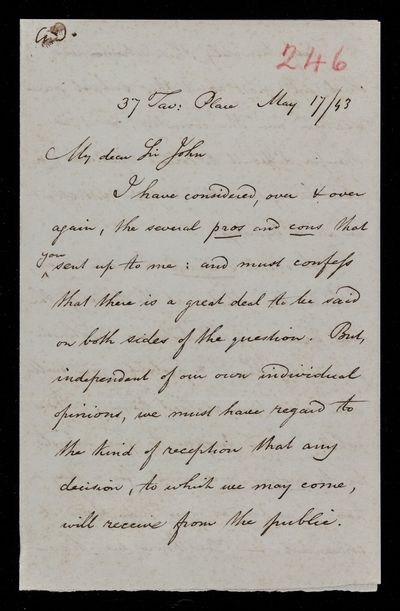 246
37 Tav: Place May 17/43
My dear Sir John
I have considered, over & over
again, the several pros and cons that
you
sent up to me : and must confess
that there is a great deal to be said
on both sides of the question. But,
independent of our own individual
opinions, we must have regard to
the kind of reception that any
decision, to which we may come,
will receive from the public.